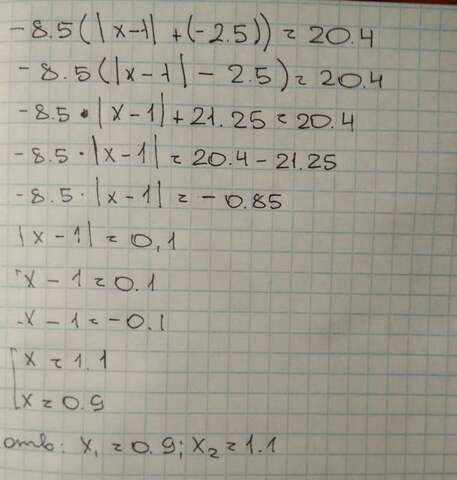 -8.5(|x-1|+(-2.5))=20.4
-8.5(|x-1|-2.5)=20.4
-8.5·|x-1|+21.25=20.4
-8.5·|x-1|=20.4-21.25
-8.5·|x-1|=-0.85
|x-1|=0,1
[x-1=0.1
x-1=-0.1
[x=1.1
x=0.9
отв: x₁=0.9; x₂=1.1